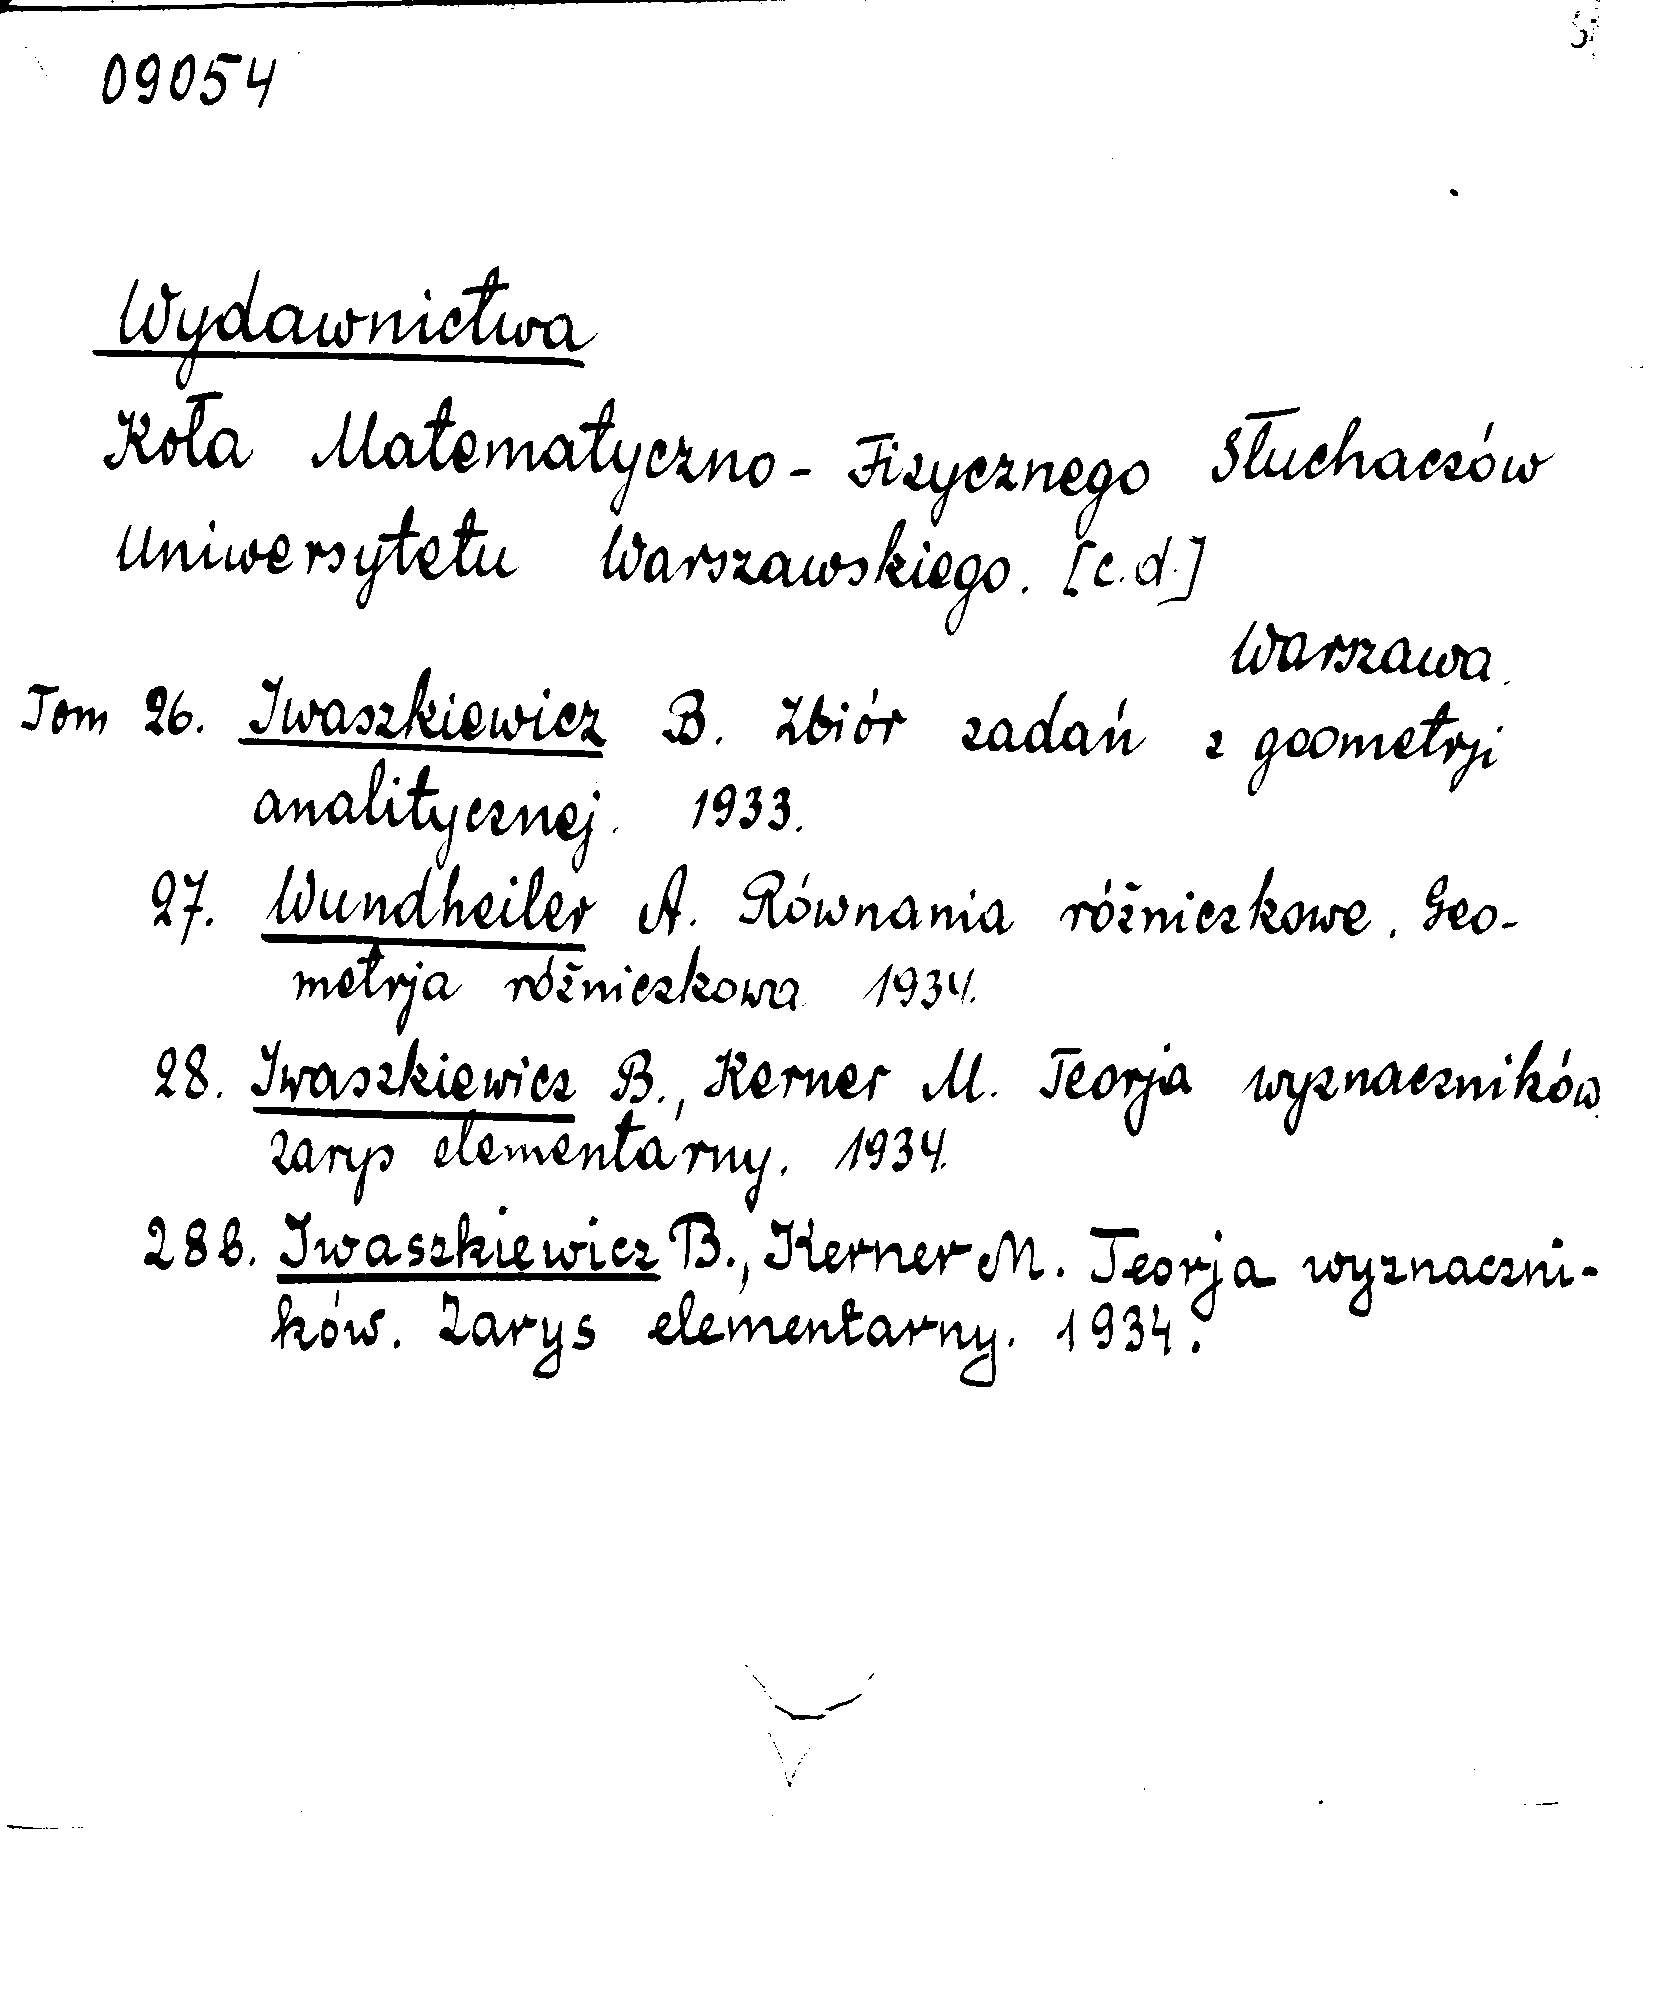 09054
Wydawnictwa
Koła Matematyczno-Fizycznego Słuchaczów
Uniwersytetu Warszawskiego. [c.d.]
Warszawa.
Tom 26. Iwaszkiewicz B. Zbiór zadań z geometrji
analitycznej. 1933.
27. Wundheiler A. Równania różniczkowe. Geo-
metrja różniczkowa 1934.
28. Iwaszkiewicz B., Kerner M. Teorja wyznaczników
zarys elementarny. 1934.
28b. Iwaszkiewicz B., Kerner M. Teorja wyznaczni-
ków. Zarys elementarny. 1934.